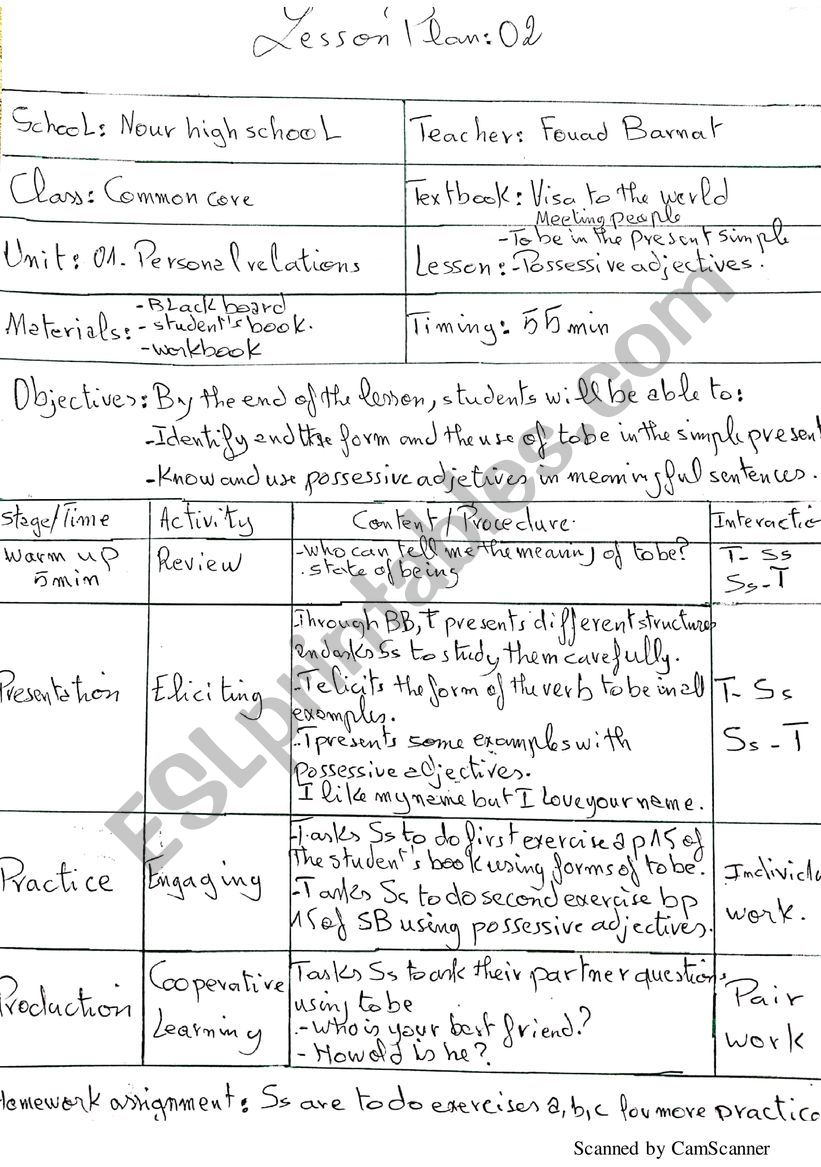 Lesson Plan: 02
School: Nour high school
Teacher: Fouad Barnat
Class: Common core
Textbook: Visa to the world
Unit: 01. Personal relations
Meeting people
-To be in the present simple
Lesson: -Possessive adjectives.
Materials:
-BLack board
-student's book.
-workbook
Timing: 55 min
Objectives: By the end of the lesson, students will be able to:
-Identify and the form and the use of to be in the simple present
-Know and use possessive adjetives in meaningful sentences.
Stage/Time
Activity
Content / Procedure
Interactio
Warm up
5min
Review
-who can tell me the meaning of to be?
. state of being
T- Ss
Ss-T
Presentation
Eliciting
Through BB, T presents different structures
and asks Ss to study them carefully.
-T elicits the form of the verb to be in all
examples.
.T presents some examples with
possessive adjectives.
I like my name but I love your name.
T- Ss
Ss - T
Practice
Engaging
-T asks Ss to do first exercise a p15 of
the student's book using forms of to be.
-T asks Ss to do second exercise b p
15 of SB using possessive adjectives.
Individu
work.
Production
Cooperative
Learning
T asks Ss to ask their partner questions
using to be
- Who is your best friend?
- How old is he?
Pair
work
Homework assignment: Ss are to do exercises a, b, c for more practice
Scanned by CamScanner
ESLprintables.com